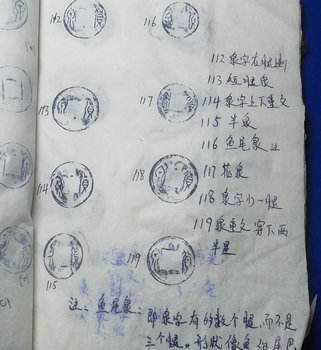 112
116
113
117
114
118
115
119
112 泉字右腿断
113 短腿泉
114 泉字上下重文
115 半泉
116 鱼尾泉 注
117 花泉
118 泉字少一腿
119 泉重文穿下两
半星
注：鱼尾泉：即泉字有的数个腿，而不是
三个腿。形状像鱼
尾巴